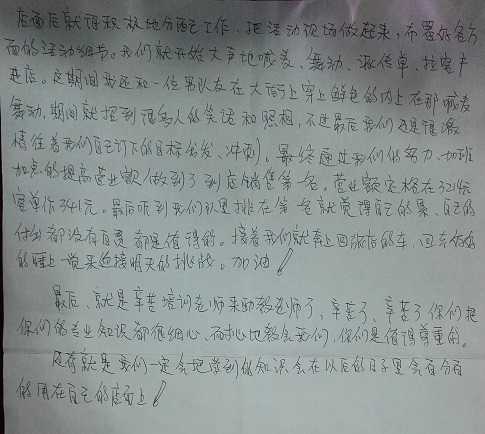 店面后就积极地分配工作,把活动现场做起来,布置好各方
面的活动细节。我们就开始大声地喊麦、舞动、派传单、拉客户
进店。这期间我还和一位男队友在大街上穿上鲜色的内上在那喊麦
舞动,期间就招到很多人的笑话和照相,不过最后我们还是很激
情住着我们自己订下的目标出发、冲刺。最终通过我们的努力、加班
加点的提高营业额做到了到店销售第一名。营业额定格在3214元
客单价341元。最后听到我们队里排在第一名就觉得自己的累、自己的
付出都没有白费都是值得的。接着我们就奔上回旅店的车,回去好好
的睡上一觉来迎接明天的挑战。加油!
最后、就是辛苦培训老师来助教老师了,辛苦了、辛苦了你们把
你们的专业知识都很细心、耐心地教会我们,你们是值得尊重的。
还有就是我们一定会把学到的知识会在以后的日子里会百分百
的用在自己的店面上!